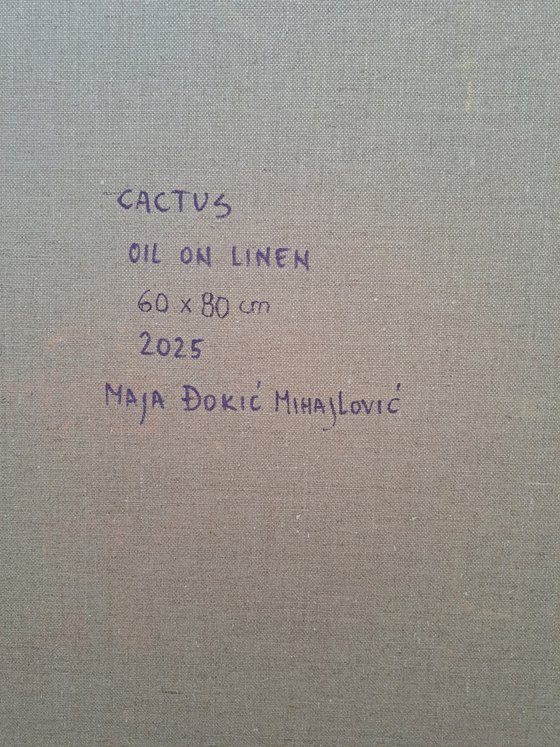 CACTUS
OIL ON LINEN
60 x 80 cm
2025
MAJA ĐOKIĆ MIHAJLOVIĆ